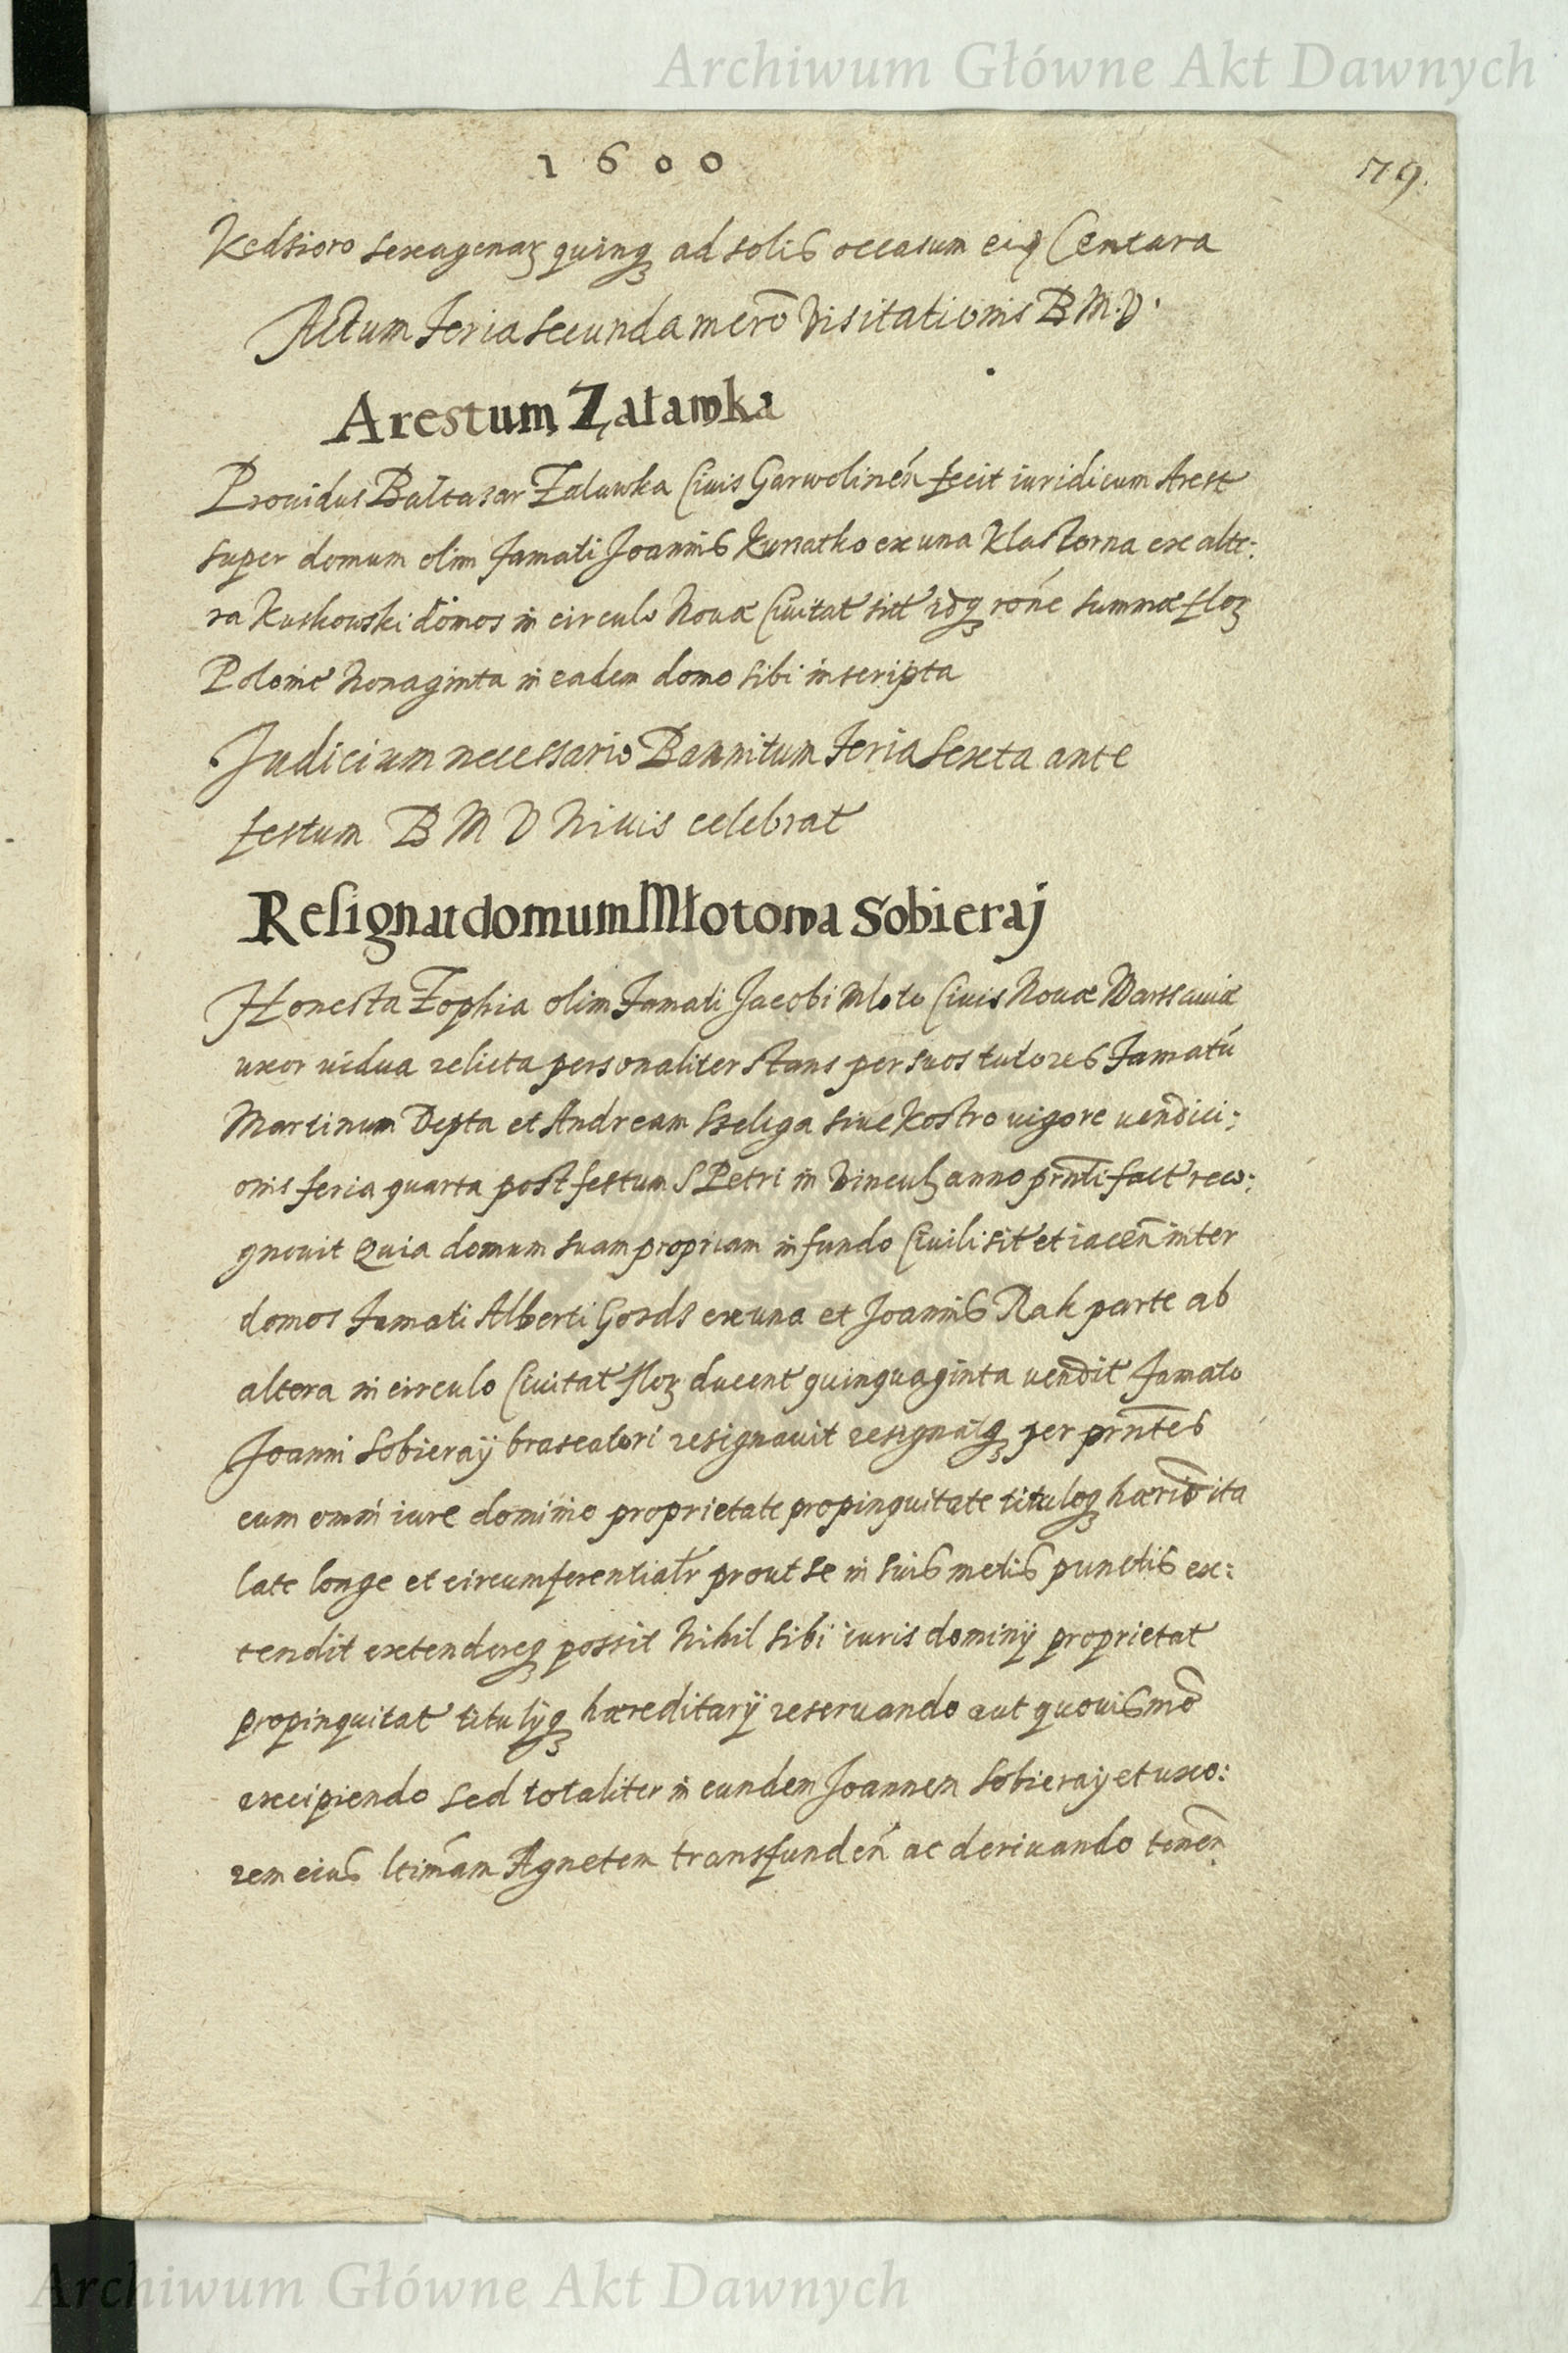 Archiwum Główne Akt Dawnych
1600
79.
Kedsioro sexagenaꝝ quinqꝫ ad solis occasum eiꝗ Centura
Actum feria secunda mero Visitationis B M. V.
Arestum Załawka
Prouidus Baltasar Zalawka Ciuis Garwolinen fecit iuridicum Arest
super domum olim famati Joannis Kurnatko ex una Klasztorna ex alte:
ra Kuskowski domos in circulo Nouæ Ciuitat sit idqꝫ rone summæ floꝝ
Polonic Nonaginta in eadem domo sibi inscripta
Judicium necessario Bannitum feria sexta ante
festum B M V Niuis celebrat
Resignat domum Młotowa Sobieraj
Honesta Zophia olim famati Jacobi Mloto Ciuis Nouæ Warssauiæ
uxor uidua relicta personaliter stans per suos tutores famatu
Martinum Depta et Andream Szeliga siue Kostro uigore uendici:
onis feria quarta post festum S Petri in Vinculꝫ anno prnti fact reco:
gnouit Quia domum suam propriam in fundo Ciuili sit et iacen inter
domos famati Alberti Gozds ex una et Joannis Rak parte ab
altera in circulo Ciuitat floꝝ ducent quinquaginta uendit famato
Joanni Sobieraÿ braseatori resignauit resignatqꝫ per prntes
cum omni iure dominio proprietate propinquitate tituloqꝫ hærio ita
late longe et circumferentialr prout se in suis metis punctis ex:
tendit extendereqꝫ possit Nihil sibi iuris dominÿ proprietat
propinquitat titulÿqꝫ hæreditarÿ reseruando aut quouis mo
excipiendo sed totaliter in eundem Joannem Sobieraÿ et uxo:
rem eius ltimam Agnetem transfunden ac deriuando tenen
Archiwum Główne Akt Dawnych